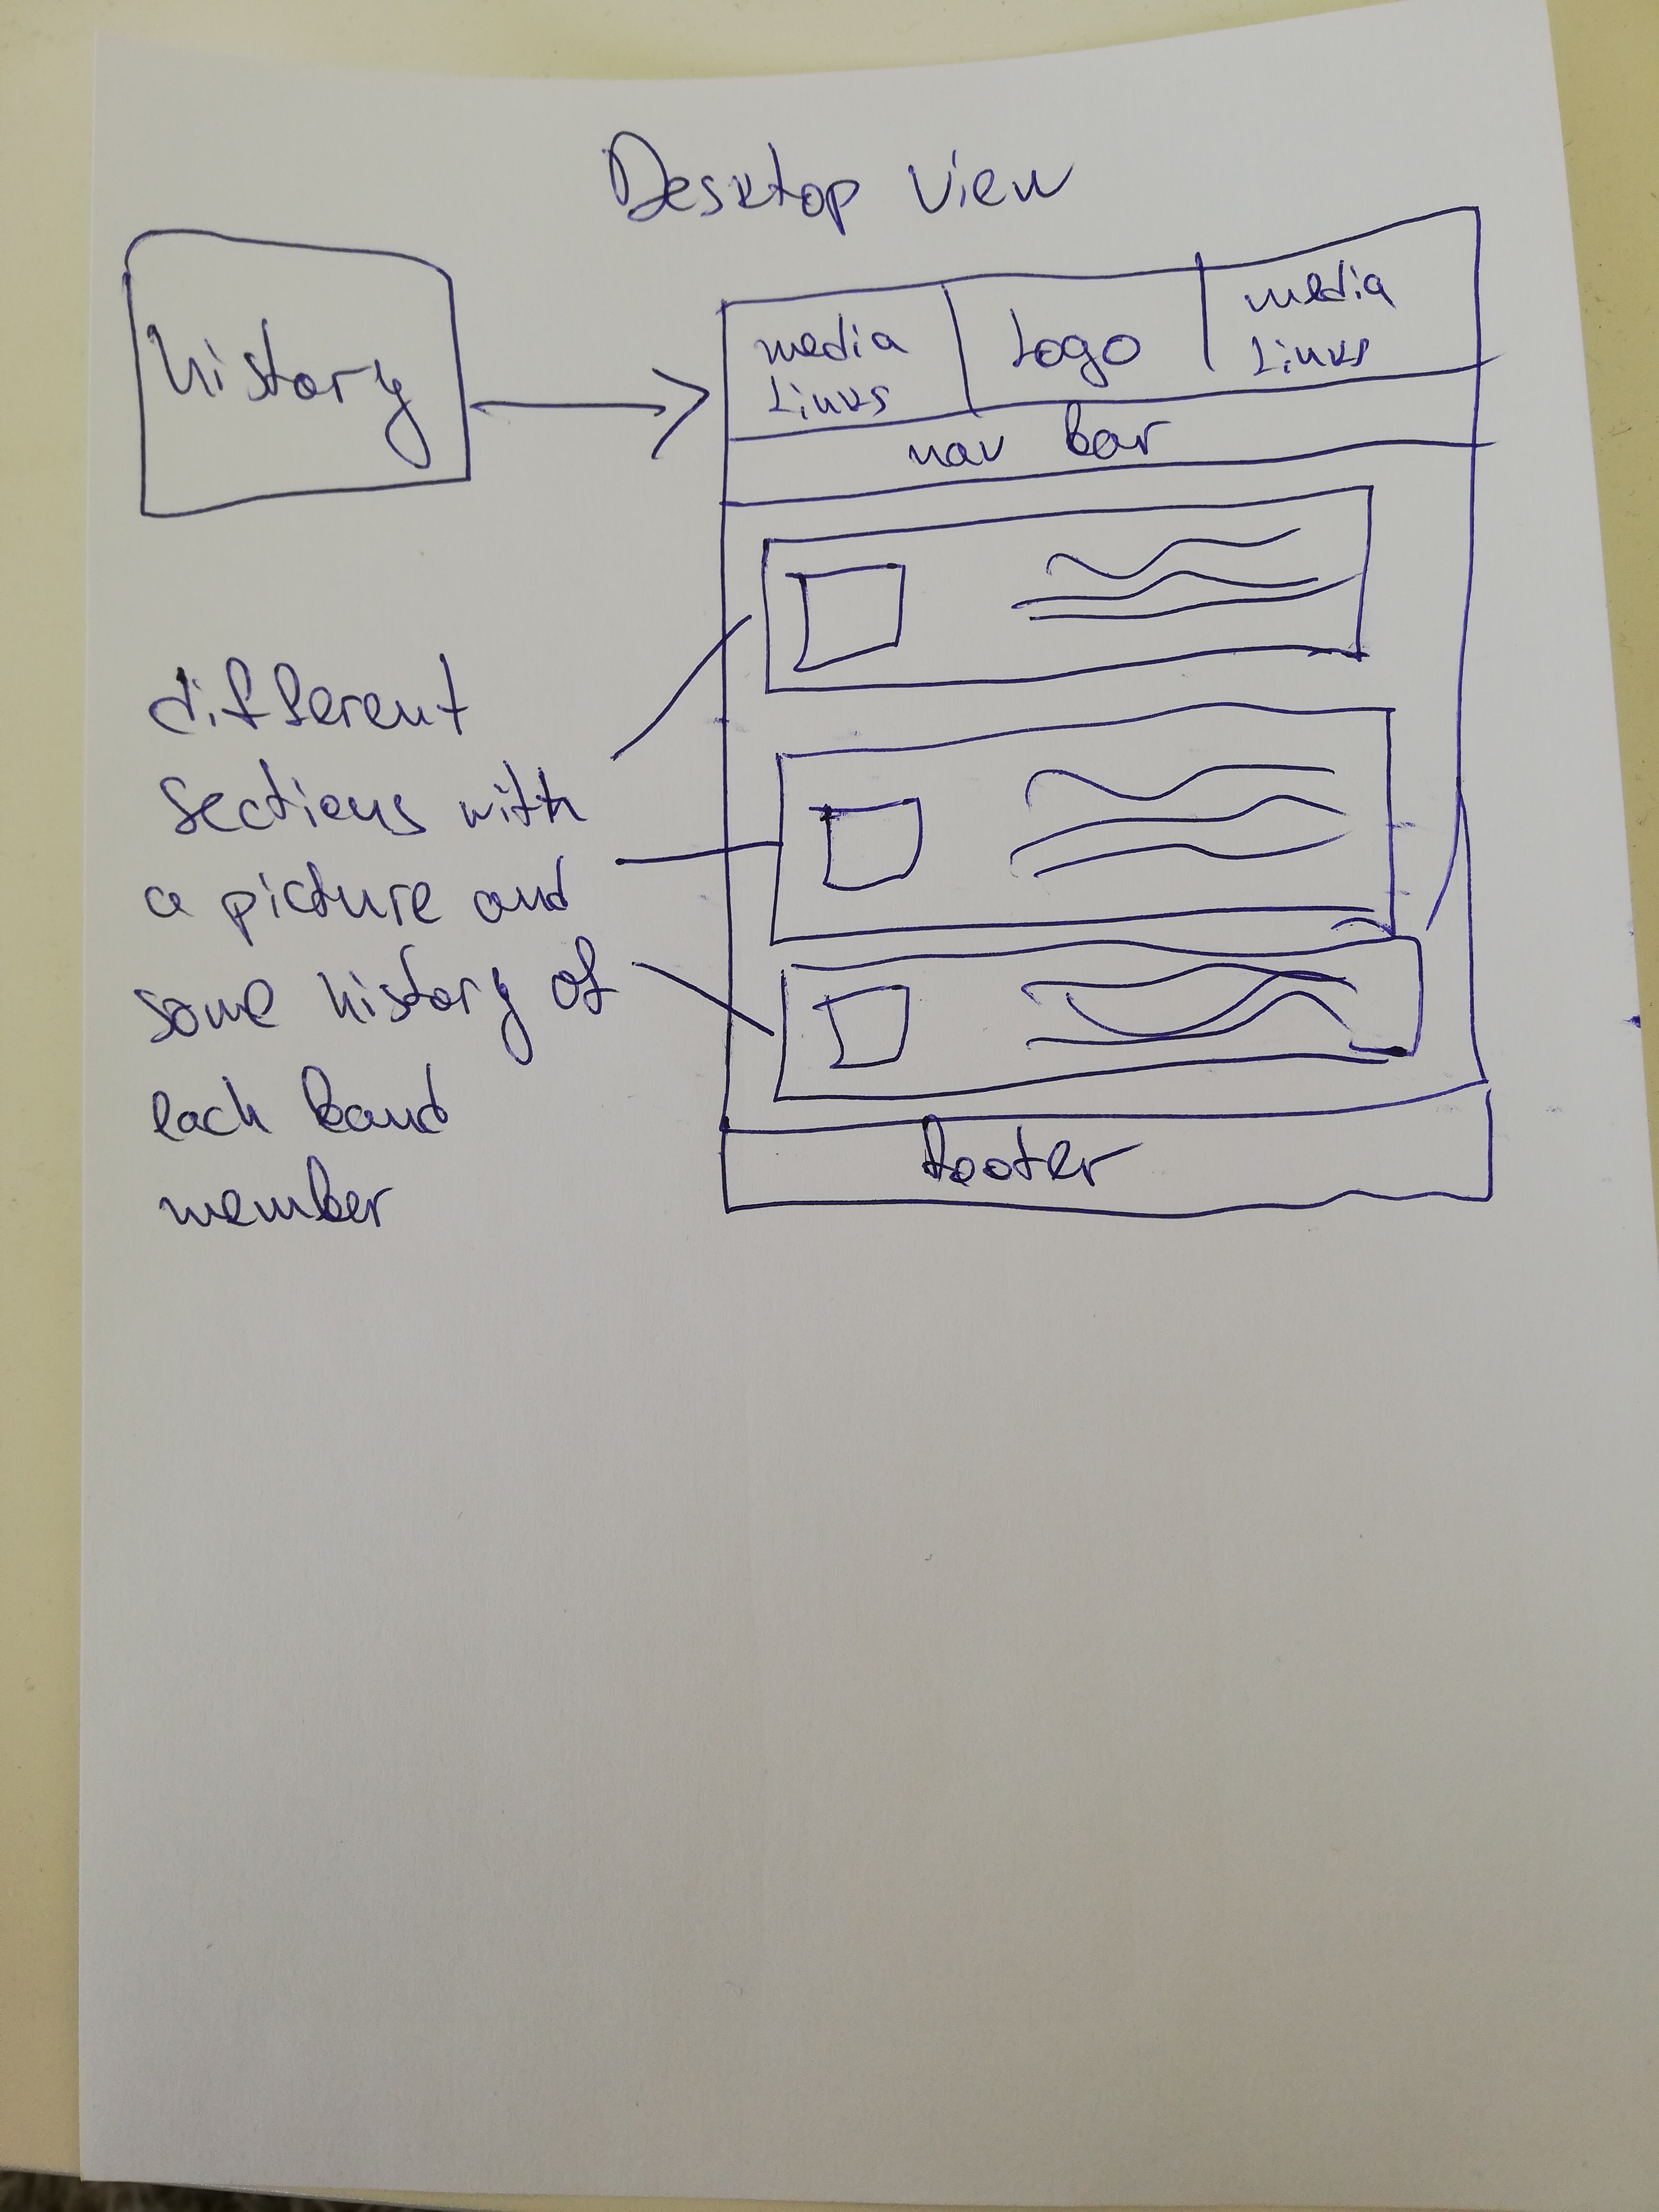 Desktop view
history
media
Links
Logo
media
Links
nav bar
different
sections with
a picture and
some history of
each band
member
footer